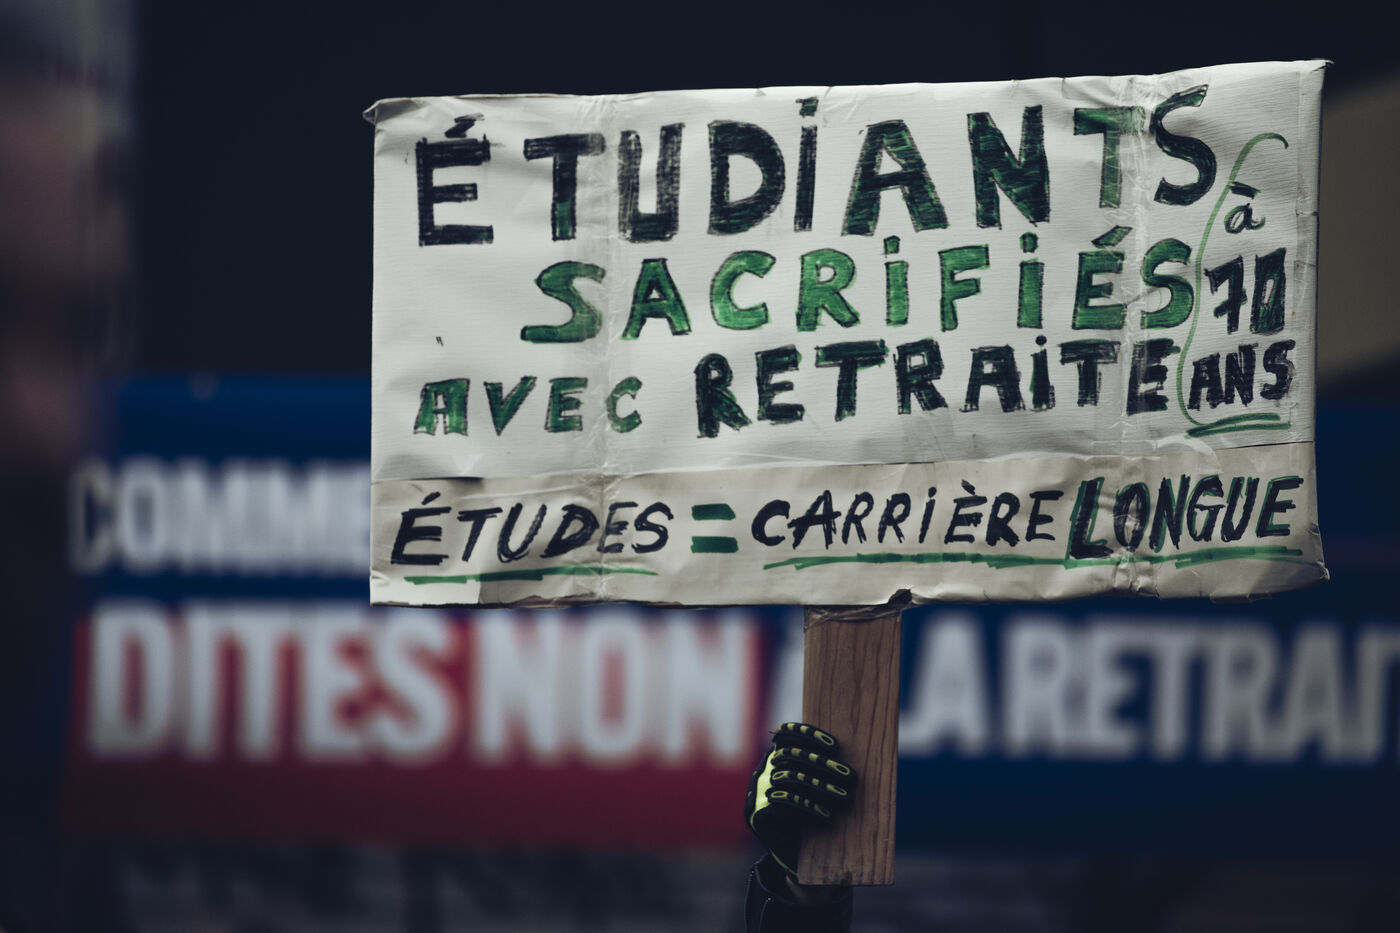 ÉTUDIANTS
SACRIFIÉS
AVEC RETRAITE
à
70
ANS
ÉTUDES = CARRIÈRE LONGUE
COMME
DITES NON À LA RETRAIT